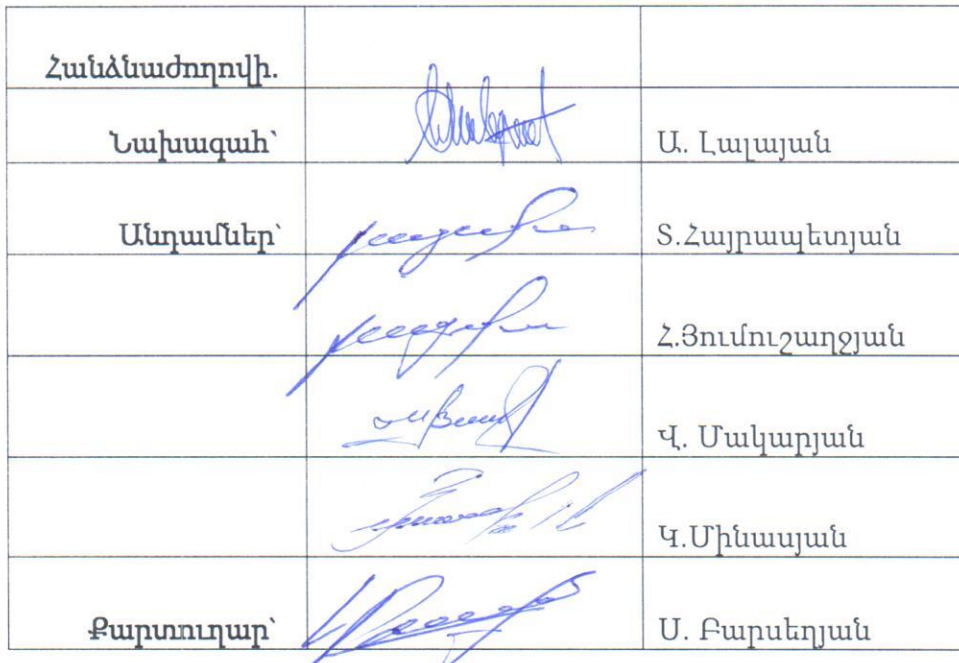 Հանձնաժողովի.
Նախագահ՝ Ա. Լալայան
Անդամներ՝ Տ.Հայրապետյան
Հ.Յումուշաղջյան
Վ. Մակարյան
Կ.Մինասյան
Քարտուղար՝ Ս. Բարսեղյան